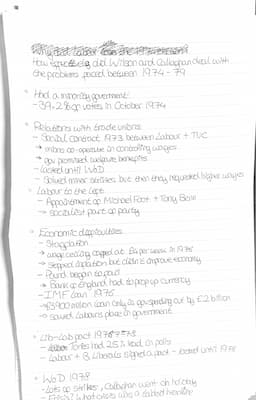 How effectively did Wilson and Callaghan deal with
the problems faced between 1974 - 79
• Had a minority government
- 39.2% of votes in October 1974
• Relations with trade unions
- Social contract 1973 between Labour + TUC
→ unions co-operate in controlling wages
→ gov promised welfare benefits
- lasted until WoD
- Solved miner strikes but then they requested higher wages
• Labour to the left
- Appointment of Michael Foot + Tony Benn
→ socialist part of party
• Economic difficulties
- Stagflation
→ wage ceiling capped at £6 per week in 1975
→ stopped inflation but didn't improve economy
- Pound began to fall
→ Bank of England had to prop up currency
- IMF Loan 1976
→ £3900 million loan only if gov spending cut by £2 billion
→ saved Labours place in government
• Lib-Lab pact 1977-78
- Tories had 25% lead in polls
- Labour + 8 Liberals signed a pact - lasted until 1978
• WoD 1978
- Lots of strikes, Callaghan went on holiday